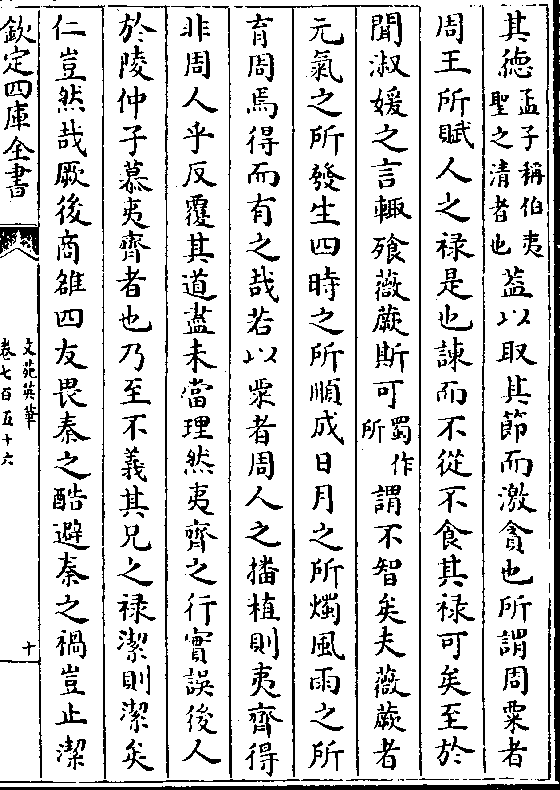 其德孟子稱伯夷聖之清者也葢以取其節而激貪也所謂周粟者
周王所賦人之祿是也諫而不從不食其祿可矣至於
聞淑媛之言輙飱薇蕨斯可蜀作所謂不智矣夫薇蕨者
元氣之所發生四時之所順成日月之所燭風雨之所
育周焉得而有之哉若以粟者周人之播植則夷齊得
非周人乎反覆其道盡未當理然夷齊之行實誤後人
於陵仲子慕夷齊者也乃至不義其兄之祿潔則潔矣
仁豈然哉厥後商雒四友畏秦之酷避秦之禍豈止潔
欽定四庫全書
文苑英華
卷七百五十六
十